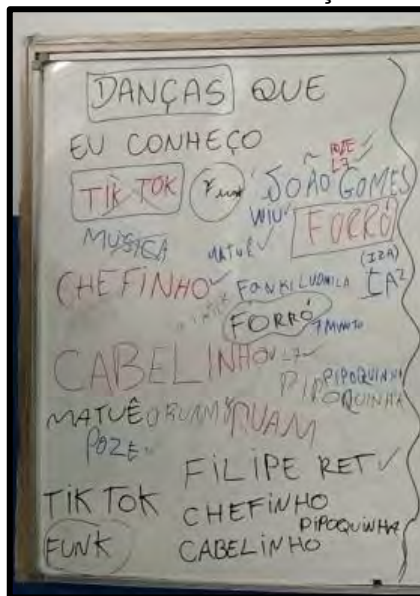 DANÇAS QUE
EU CONHEÇO
POZE
L7
TIK TOK Funk JOÃO GOMES
WIU FORRÓ
MUSICA MATUÊ (IZA)
CHEFINHO FANKI LUDMILA IAZ
FORRÓ 7 MINUTO
CABELINHO L7
PIPOQUINHA
PIPOQUINHA
MATUÊ ORUAM ORUAM
POZE
FILIPE RET
TIK TOK CHEFINHO
PIPOQUINHA
FUNK CABELINHO